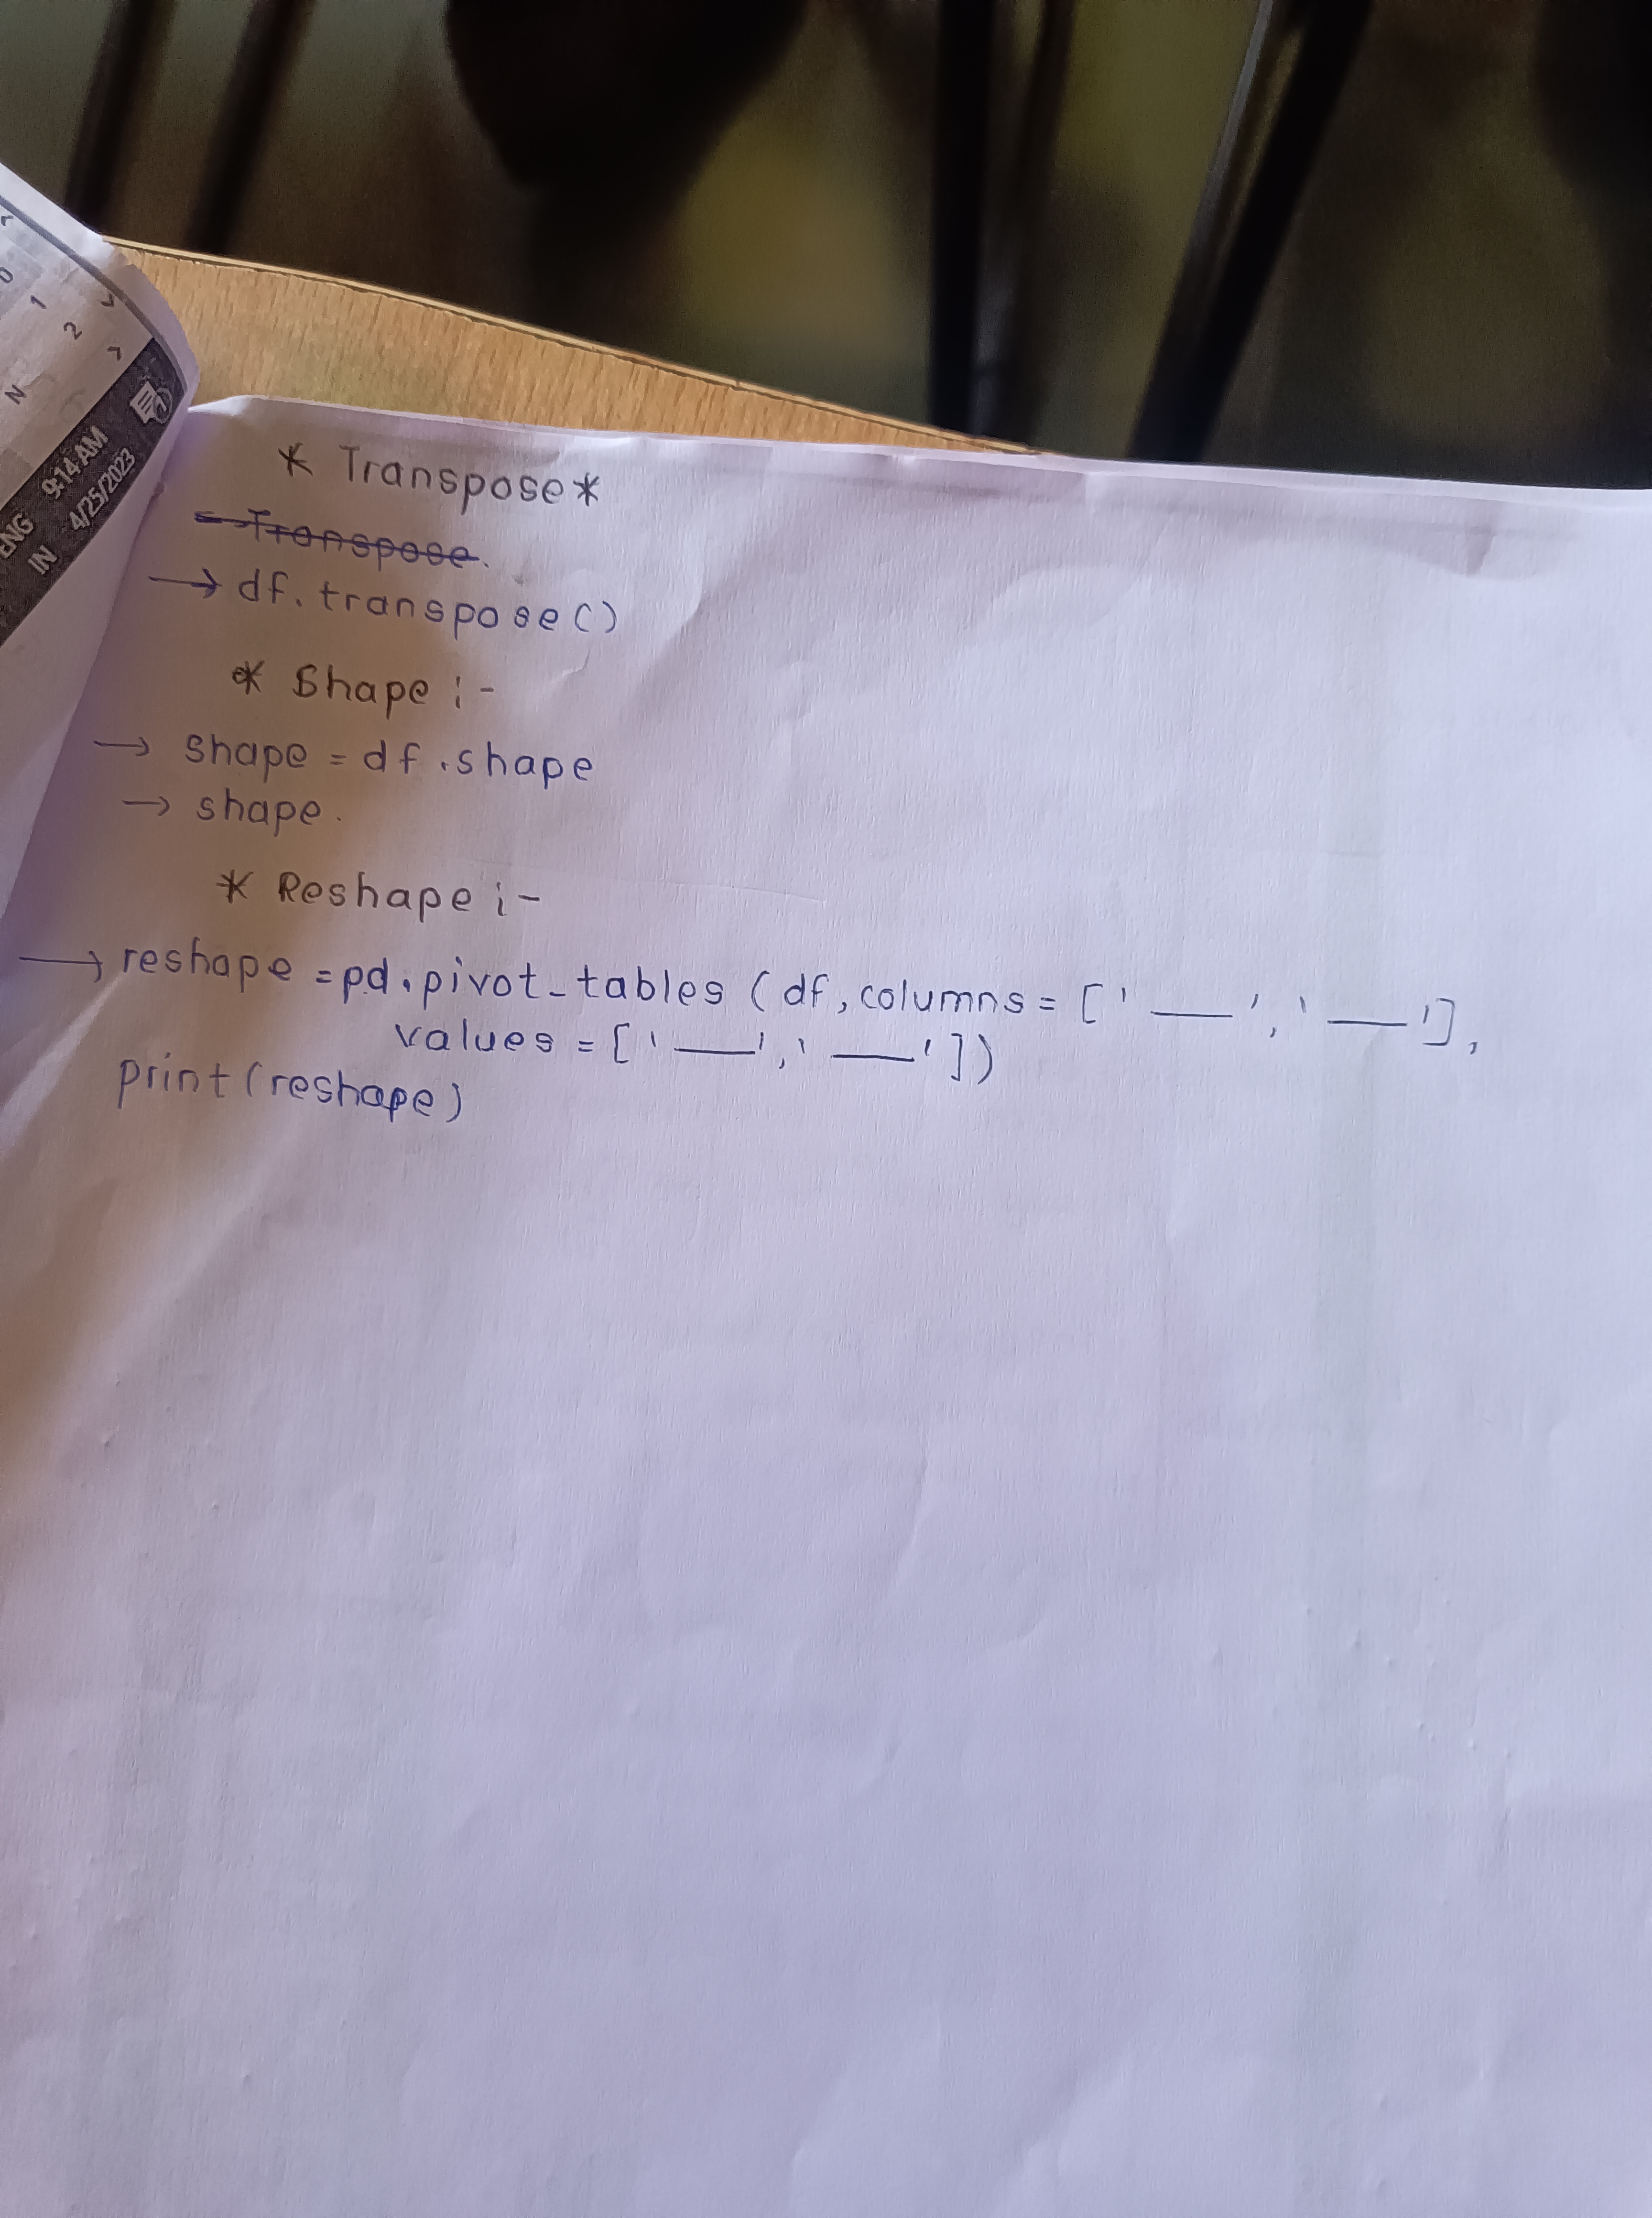 1
2
N
ENG 9:14 AM
IN 4/25/2023
* Transpose *
Transpose.
→ df.transpose()
* Shape :-
→ shape = df.shape
→ shape.
* Reshape :-
→ reshape = pd.pivot_tables (df, columns = ['___', '___'],
values = ['___', '___'])
print(reshape)